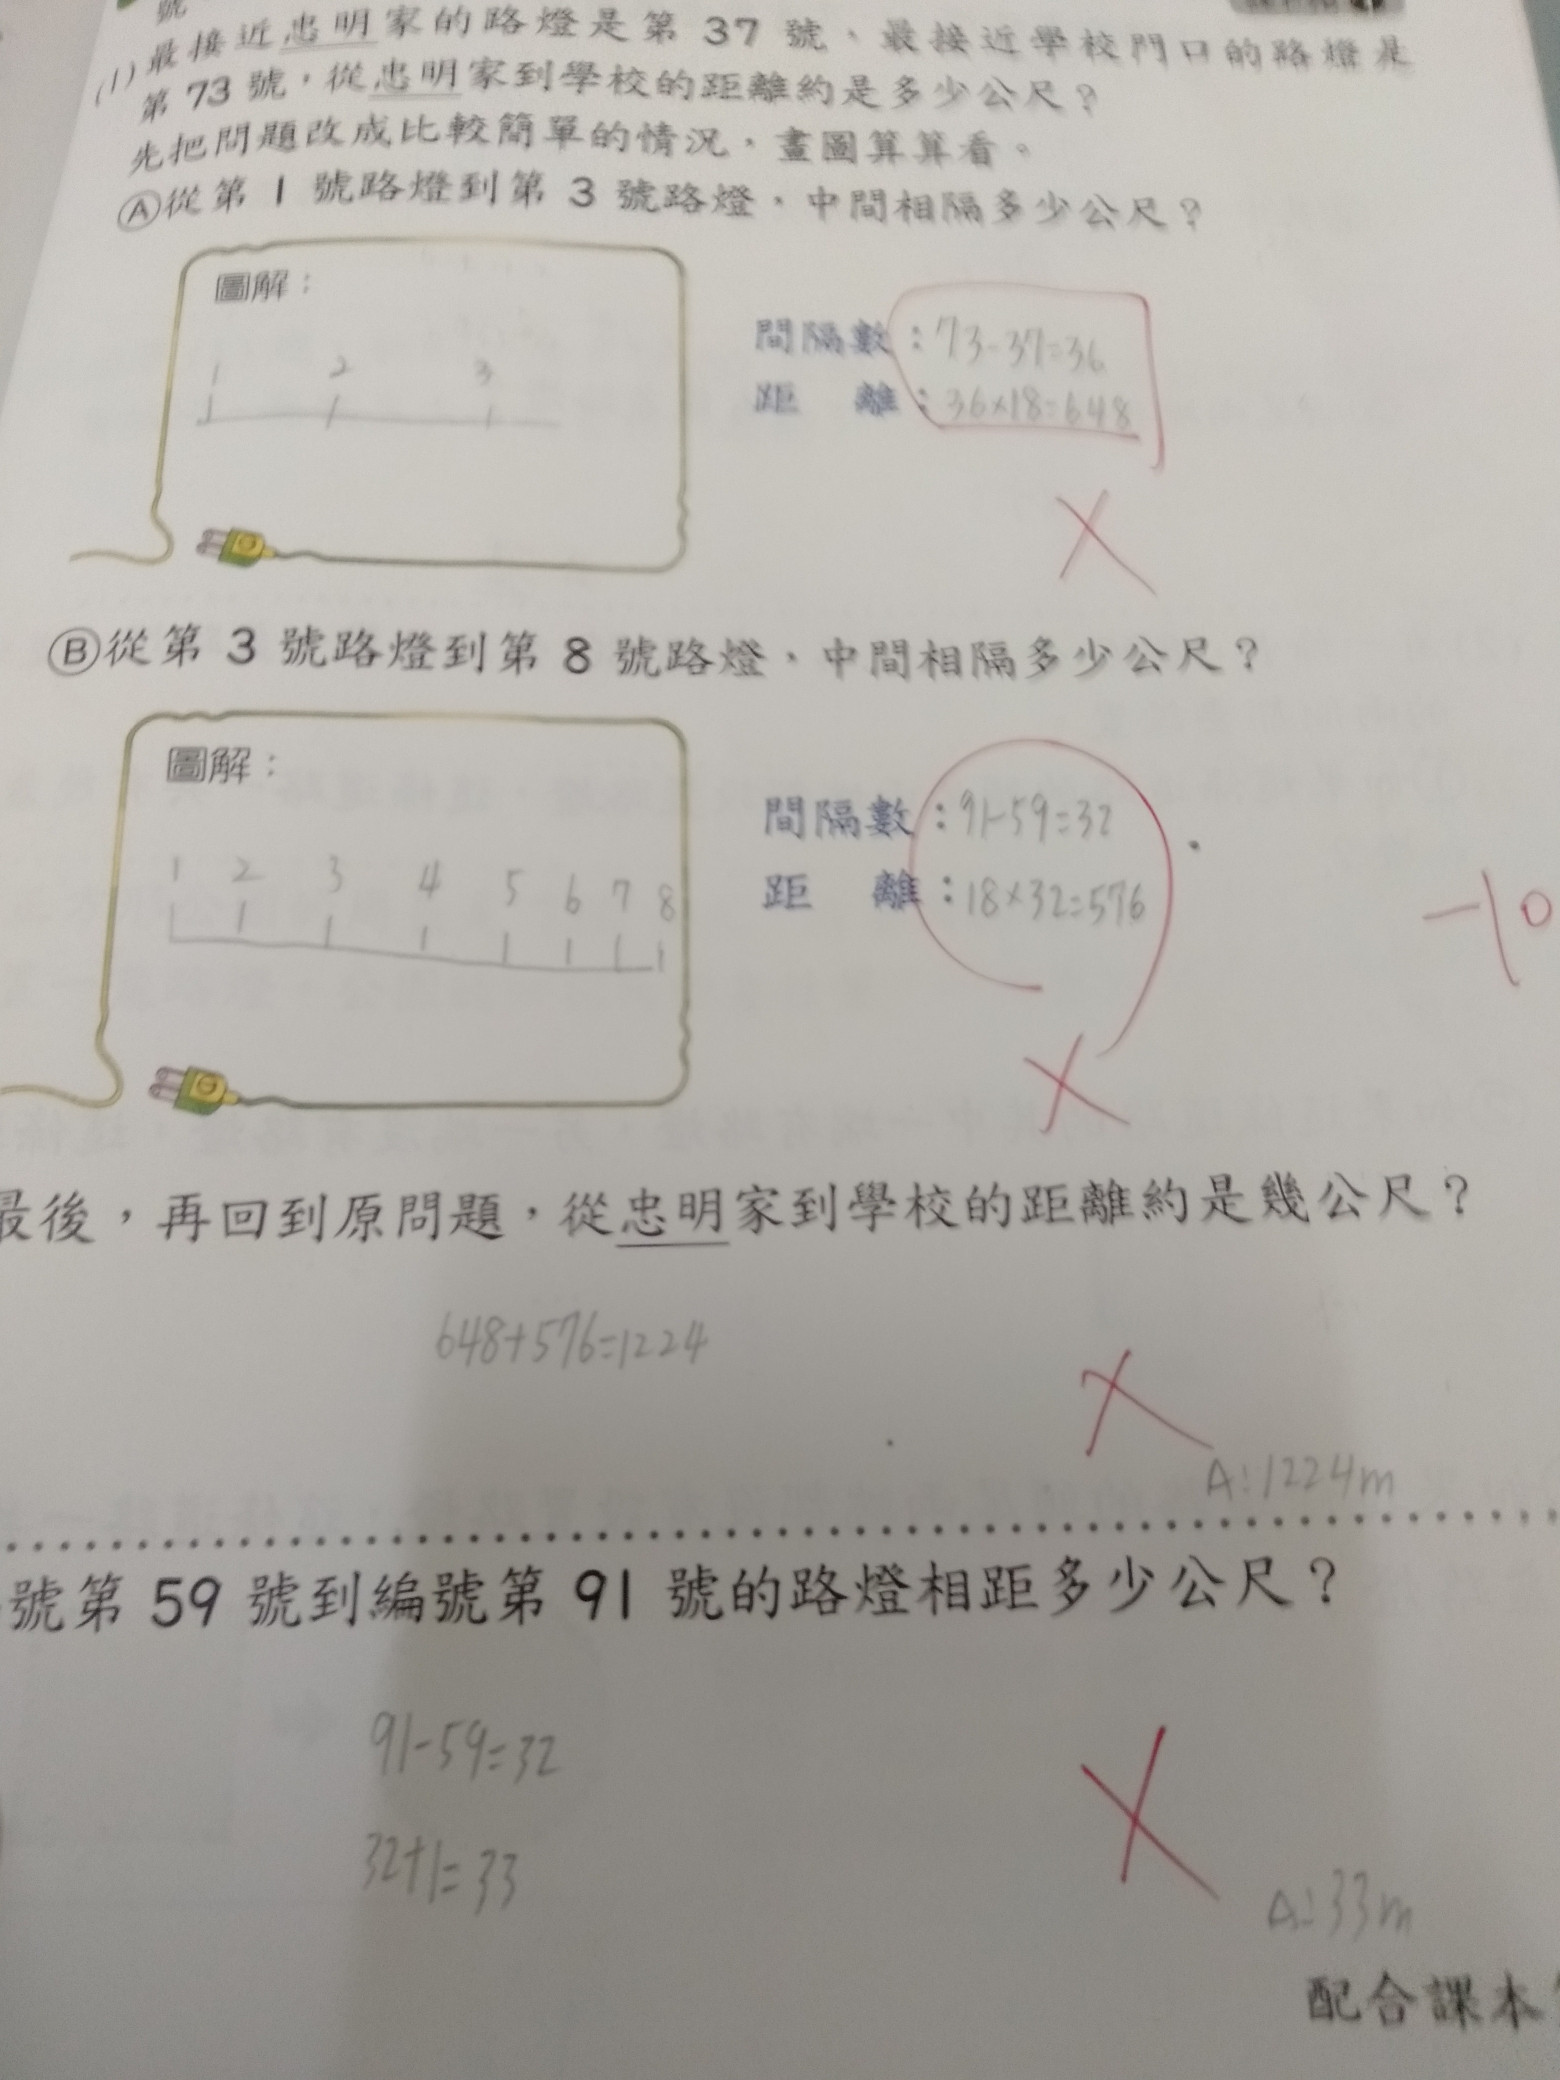 號
(1)最接近忠明家的路燈是第 37 號,最接近學校門口的路燈是
第 73 號,從忠明家到學校的距離約是多少公尺?
先把問題改成比較簡單的情況,畫圖算算看。
Ⓐ從第 1 號路燈到第 3 號路燈,中間相隔多少公尺?
圖解:
1 2 3
間隔數:73-37=36
距 離:36×18=648
Ⓑ從第 3 號路燈到第 8 號路燈,中間相隔多少公尺?
圖解:
1 2 3 4 5 6 7 8
間隔數:91-59=32
距 離:18×32=576
-10
最後,再回到原問題,從忠明家到學校的距離約是幾公尺?
648+576=1224
A:1224m
號第 59 號到編號第 91 號的路燈相距多少公尺?
91-59=32
32+1=33
A:33m
配合課本